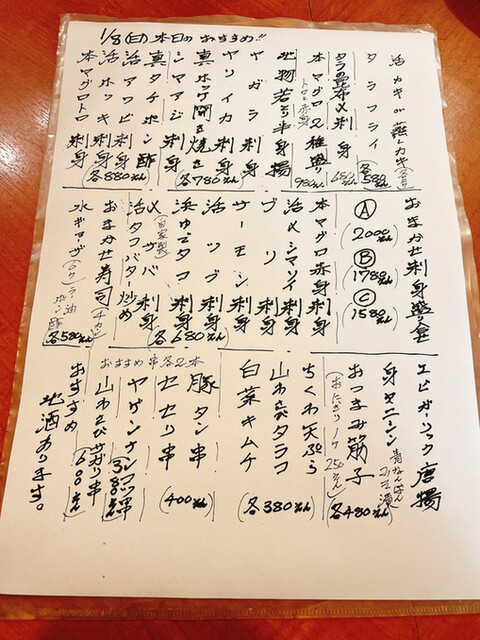 1/8(日)本日のおすすめ!!
活カキor蒸しカキ(各2ケ)
タラフライ
各580えん
タラの昆布〆刺身
680えん
本マグロ2種盛り
トロと赤身
980えん
地物若どり半身揚
ヤガラ刺身
ヤリイカ刺身
真ホッケ開き焼き
(各780えん)
シマアジ刺身
真タチポン酢
活アワビ刺身
活ホッキ刺身
本マグロトロ刺身
(各880えん)
おまかせ刺身盛合
Ⓐ(2000えん)
Ⓑ(1780えん)
Ⓒ(1580えん)
本マグロ赤身刺身
活〆シマソイ刺身
ブリ刺身
サーモン刺身
活ツブ刺身
浜ゆでタコ刺身
(各680えん)
(自家製)
〆サバ刺身
活タコバター炒め
おまかせ寿司(4カン)
水ギョーザ ラー油ポン酢
各580えん
エビガーリック唐揚
身欠ニシン
おつまみ筋子
(おにぎり1ケ250えん)
(各480えん)
ちくわ天ぷら
山わさびタラコ
白菜キムチ
(各380えん)
おすすめ串各2本
豚タン串
セセリ串
(400えん)
ヤゲンナンコツ串
(380えん)
山わさびサガリ串
(600えん)
おすすめ
地酒あります。